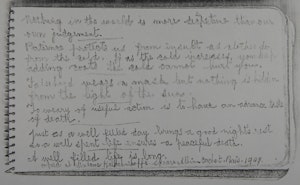 Nothing in the world is more deceptive than our
own judgement.
Patience protects us from insults as clothes do
from the cold. If as the cold increases, you keep
adding coats the cold cannot hurt you.
wears a mask but nothing is hidden
from the sight of the Sun.
Memory of useful action is to have an advance taste
of death.
Just as a well filled day brings a good nights rest
So a well spent life ensures a peaceful death.
A well filled life is long.